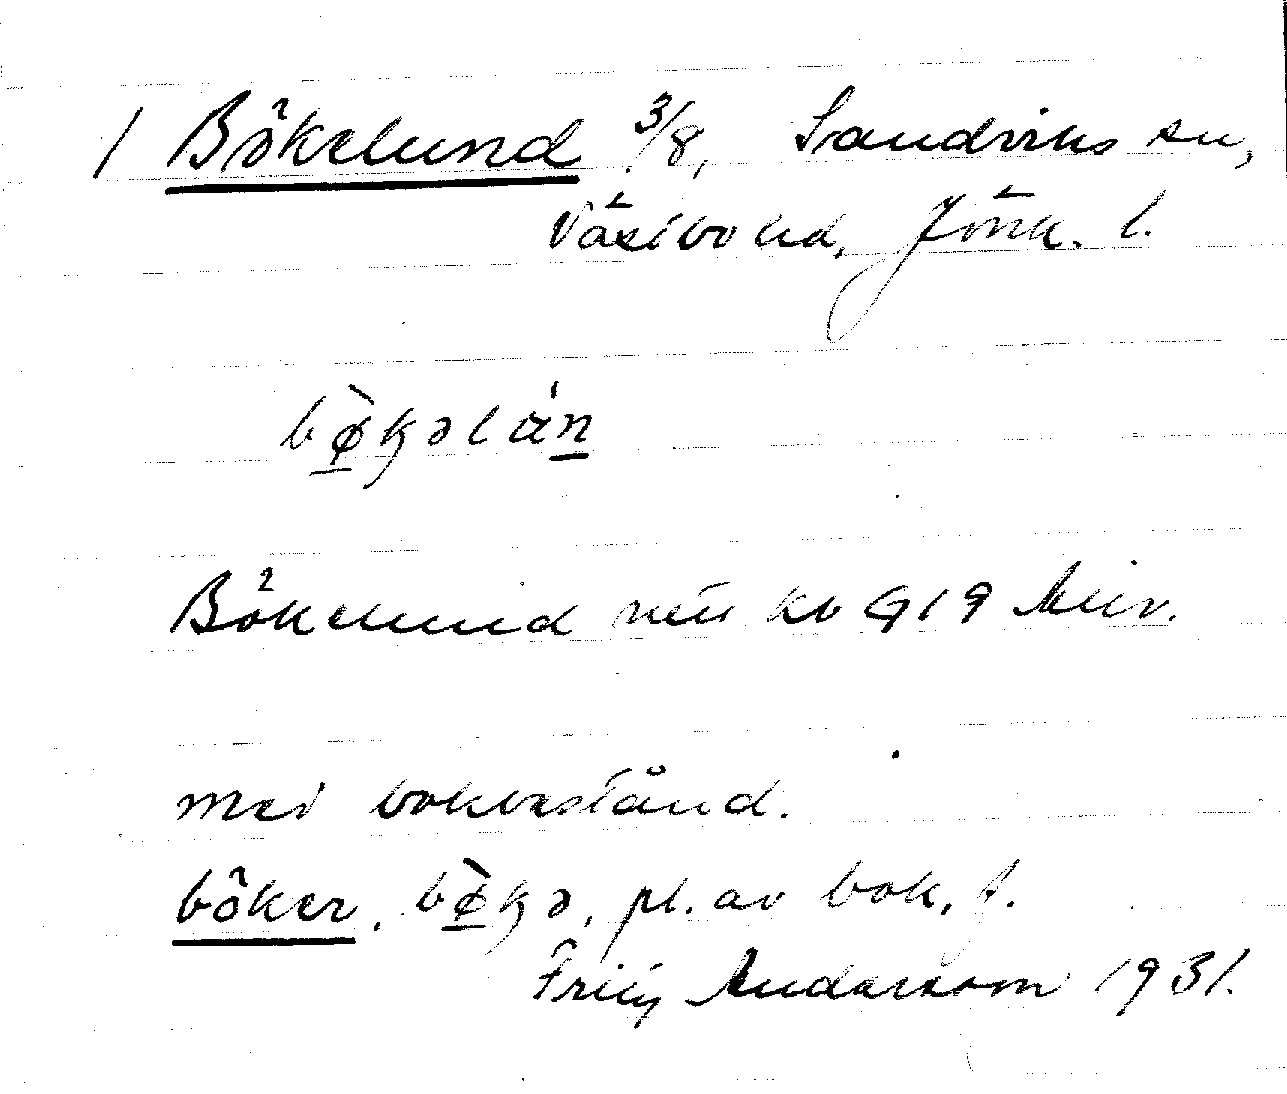 1 Bökelund 3/8, Sandviks sn,
Västbo hd, Jönk. l.
bø̱̀kəlán̲
Bökelund
med bokbestånd.
böker, bø̱̀kə, pl. av bok, f.
Fritz Andersson 1931.